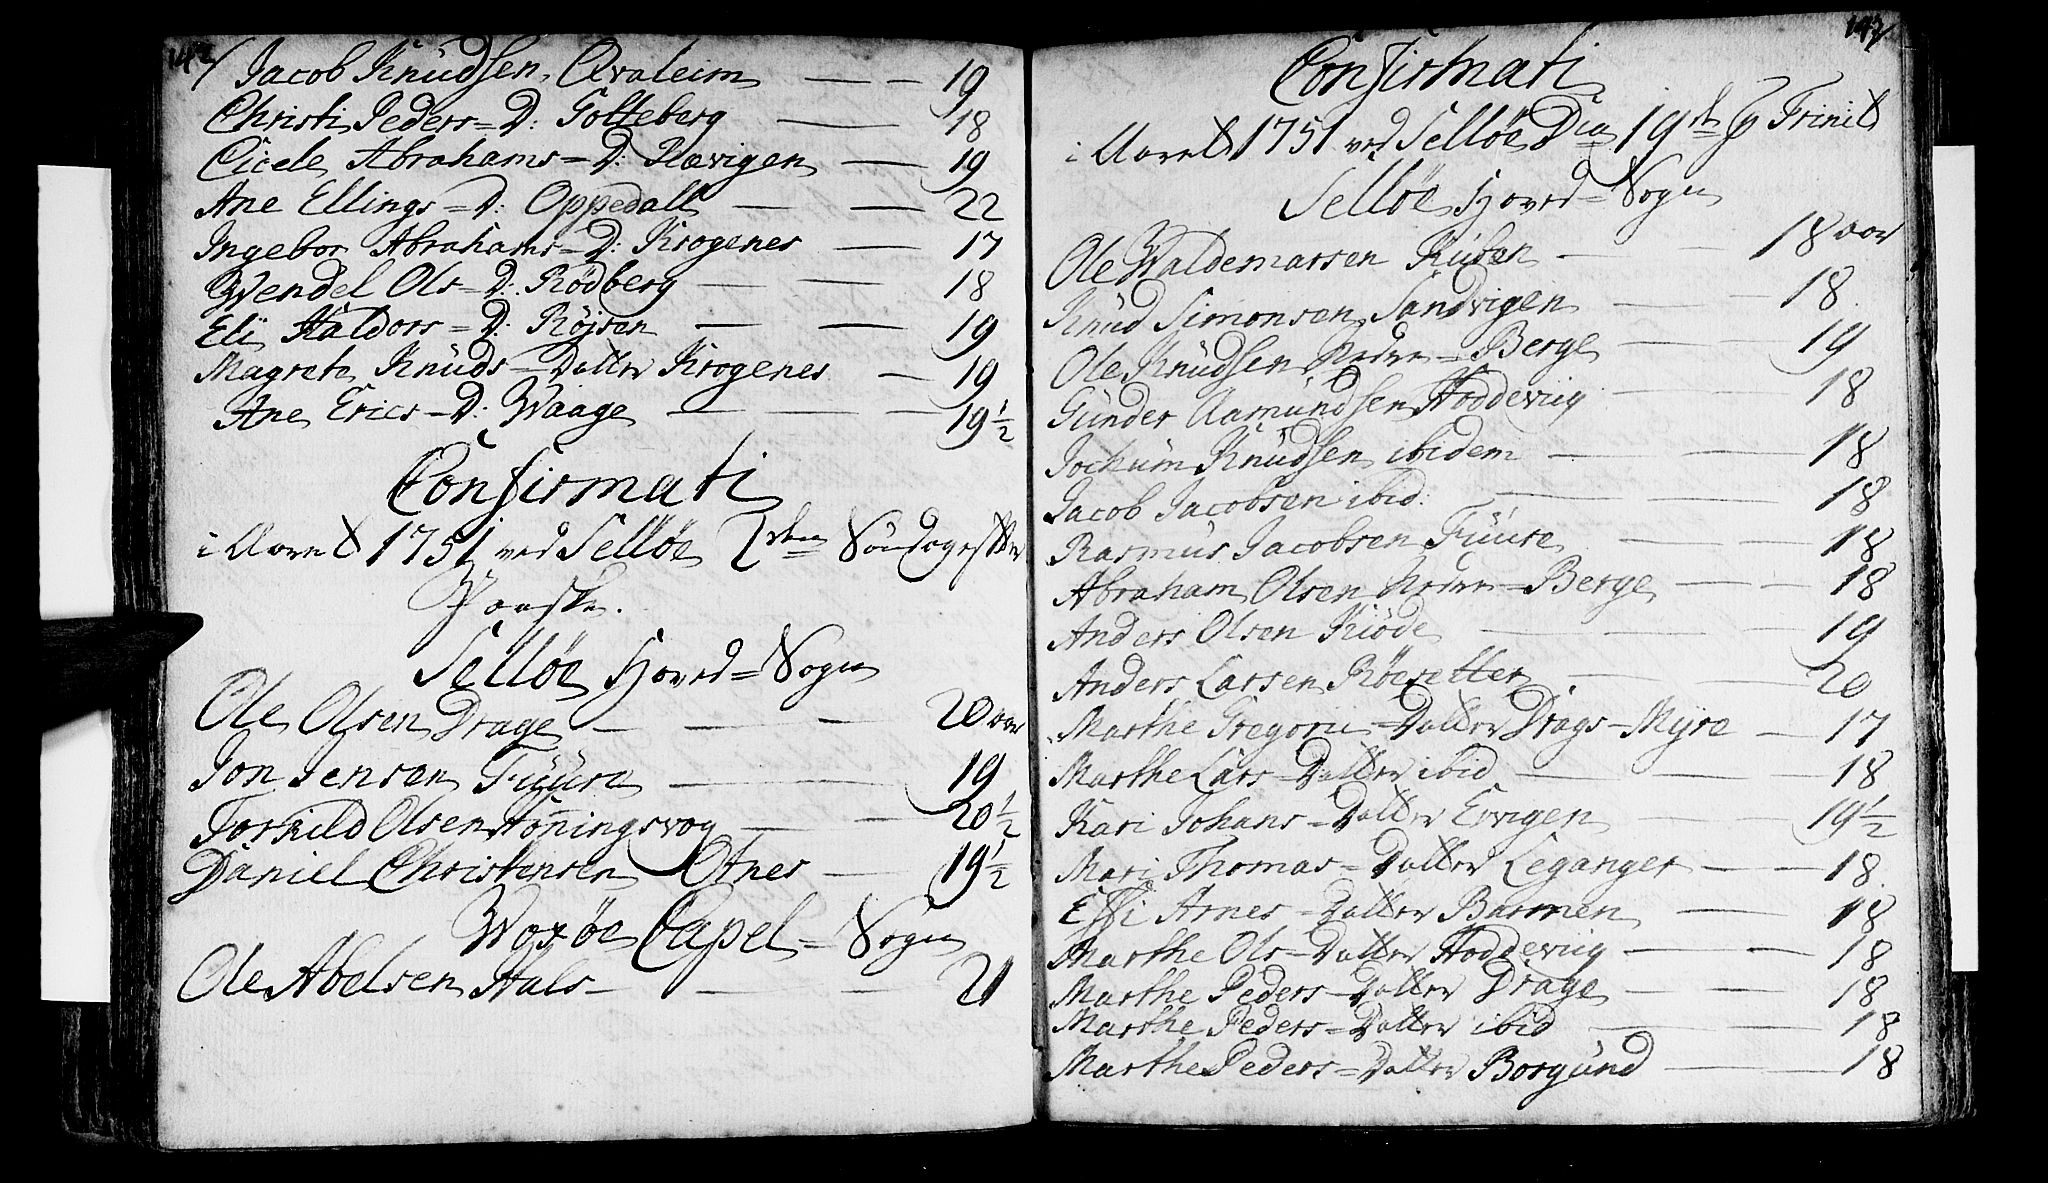 142
Jacob Knüdsen, Qvaleim — — 19
Christi Peders=D: Golteberg — — 18
Cicele Abrahams=D: Rævigen — 19
Ane Ellings=D: Oppedall — — 22
Ingebor Abrahams=D: Krogenes — 17
Wendel Ols=D: Rödberg — — 18
Eli Haldors=D: Röjsen — — 19
Magrete Knüds=Datter Krogenes — 19
Ane Erics=D: Waage — — 19 1/2
Confirmati
i Aaret 1751 ved Sellöe Söndag efter
Paaske.
Sellöe Hoved=Sogn
Ole Olsen Drage — — — 20 aar
Jon Jensen Füüre — — 19
Torkild Olsen Honingsvog — — 20 1/2
Daniel Christensen Otnes — 19 1/2
Woxöe Capel=Sogn
Ole Abelsen Hals — — — 21
143
Confirmati
i Aaret 1751 ved Sellöe Dca 19 p Trinit
Sellöe Hoved=Sogn
Ole Waldemarsen Rüsen — — 18 aar
Knud Simonsen Sandvigen — — 18.
Ole Knüdsen Nedre=Berge — — 19
Günder Aamündsen Hoddeviig — — 18
Jochüm Knüdsen ibidem — — 18
Jacob Jacobsen ibid: — — 18
Rasmüs Jacobsen Füüre — — 18
Abraham Olsen Nedre=Berge — — 18
Anders Olsen Kiöde — — 19
Anders Larsen Röesetter — — 20
Marthe Gregorii=Datter Drags=Myre — 17
Marthe Lars=Datter ibid — — 18
Kari Johans=Datter Ervigen — — 19 1/2
Mari Thomas=Datter Leganger — — 18.
Effi Arnes=Datter Barmen — — 18
Marthe Ols=Datter Hoddeviig — — 18
Marthe Peders=Datter Drage — — 18
Marthe Peders=Datter ibid — — 18
Marthe Peders=Datter Borgünd — — 18